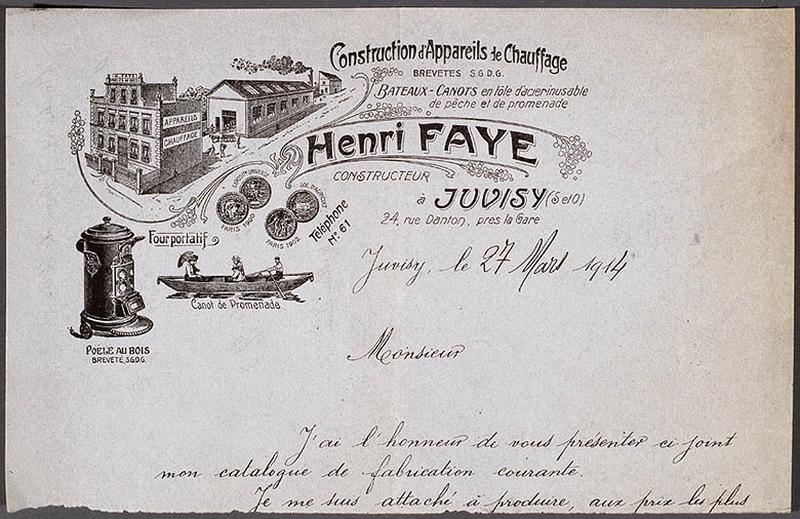 Construction d'Appareils de Chauffage
BREVETES S.G.D.G.
BATEAUX-CANOTS en tôle d'acier inusable
de pêche et de promenade
Henri FAYE
CONSTRUCTEUR
à JUVISY (S et O)
24, rue Danton, près la Gare
APPAREILS
CHAUFFAGE
PARIS 1900
PARIS 1902
Téléphone
N° 61
Four portatif
Canot de Promenade
POËLE AU BOIS
BREVETÉ, S.G.D.G.
Juvisy, le 27 Mars 1914
Monsieur
J'ai l'honneur de vous présenter ci joint
mon catalogue de fabrication courante.
Je me suis attaché à produire, aux prix les plus